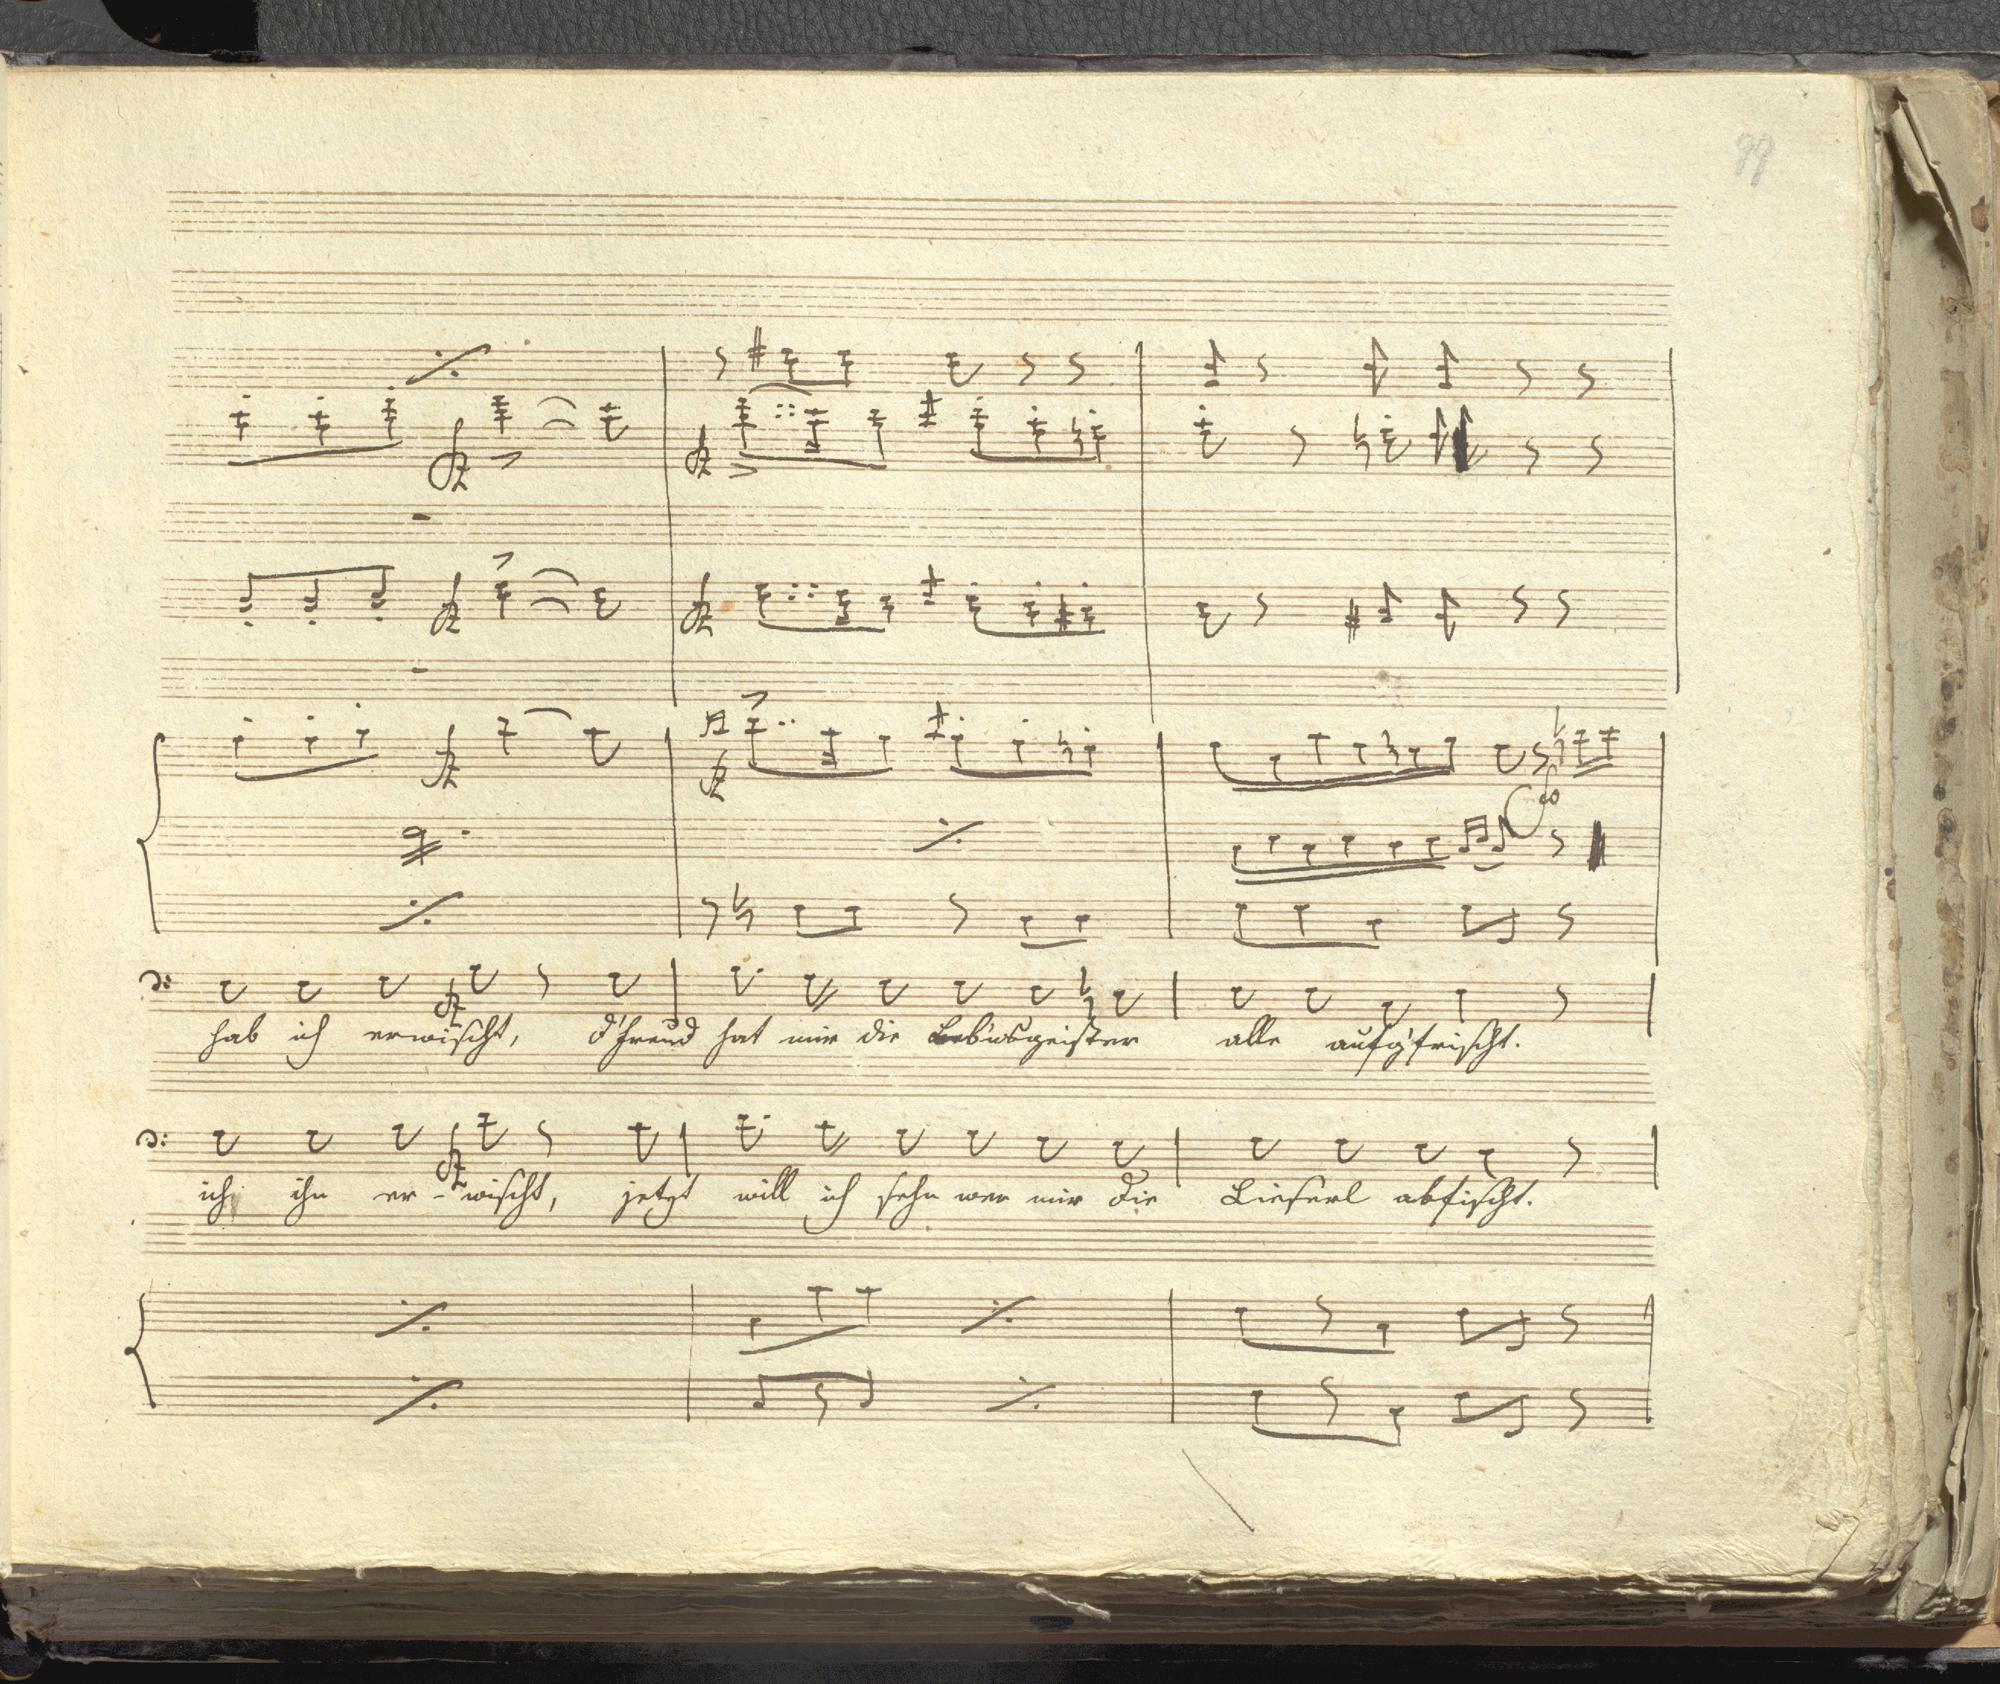 99
hab ich erwischt, d'Freud hat mir die Lebensgeister alle aufg'frischt.
ich ihn er- wischt, jetzt will ich sehn wer mir die Lieserl abfischt.